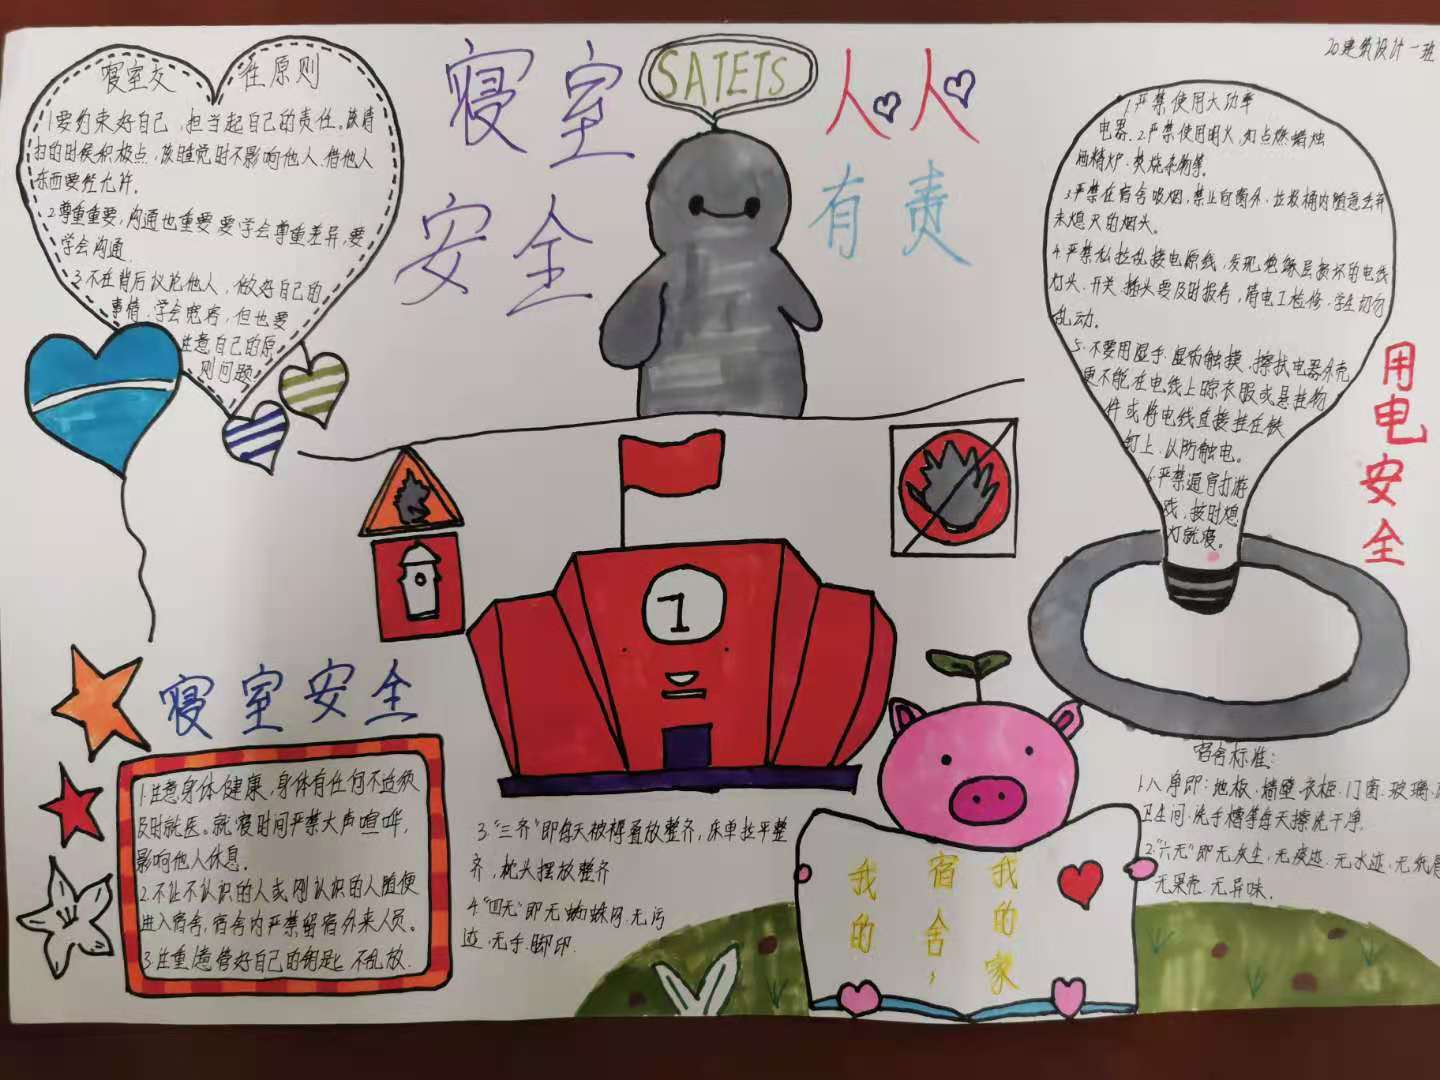 20建筑设计一班
寝室 安全
SATETS
人人
有责
寝室交 往原则
1.要约束好自己,担当起自己的责任。该清
扫的时候积极点,该睡觉时不影响他人,借他人
东西要经允许。
2.尊重重要,沟通也重要 要学会尊重差异,要
学会沟通.
3.不在背后议论他人,做好自己的
事情,学会宽容,但也要
注意自己的原
则问题
1.严禁使用大功率
电器.2.严禁使用明火,如点燃蜡烛
酒精炉.焚烧杂物等.
3.严禁在宿舍吸烟,禁止向窗外.垃圾桶内随意丢弃
未熄灭的烟头.
4.严禁私拉乱接电源线,发现绝缘层损坏的电线
灯头.开关.插头要及时报告,请电工检修.学生切勿
乱动.
5.不要用湿手.湿布触摸.擦拭电器外壳
更不能在电线上晾衣服或悬挂物
件或将电线直接挂在铁
钉上.以防触电。
6.严禁通宵打游
戏,按时熄
灯就寝。
用电安全
1
寝室安全
1.注意身体健康,身体有任何不适须
及时就医。就寝时间严禁大声喧哗,
影响他人休息.
2.不让不认识的人或刚认识的人随便
进入宿舍,宿舍内严禁留宿外来人员。
3.注重.管好自己的钥匙 不乱放.
宿舍标准:
1.八净即:地板.墙壁.衣柜.门窗.玻璃.
卫生间.洗手槽等每天擦洗干净.
2."六无"即无灰尘,无痰迹.无水迹.无纸屑
无果壳.无异味.
3."三齐"即每天被褥叠放整齐,床单拉平整
齐,枕头摆放整齐
4."四无"即无蜘蛛网.无污
迹.无手.脚印.
我的
宿舍,
我的家